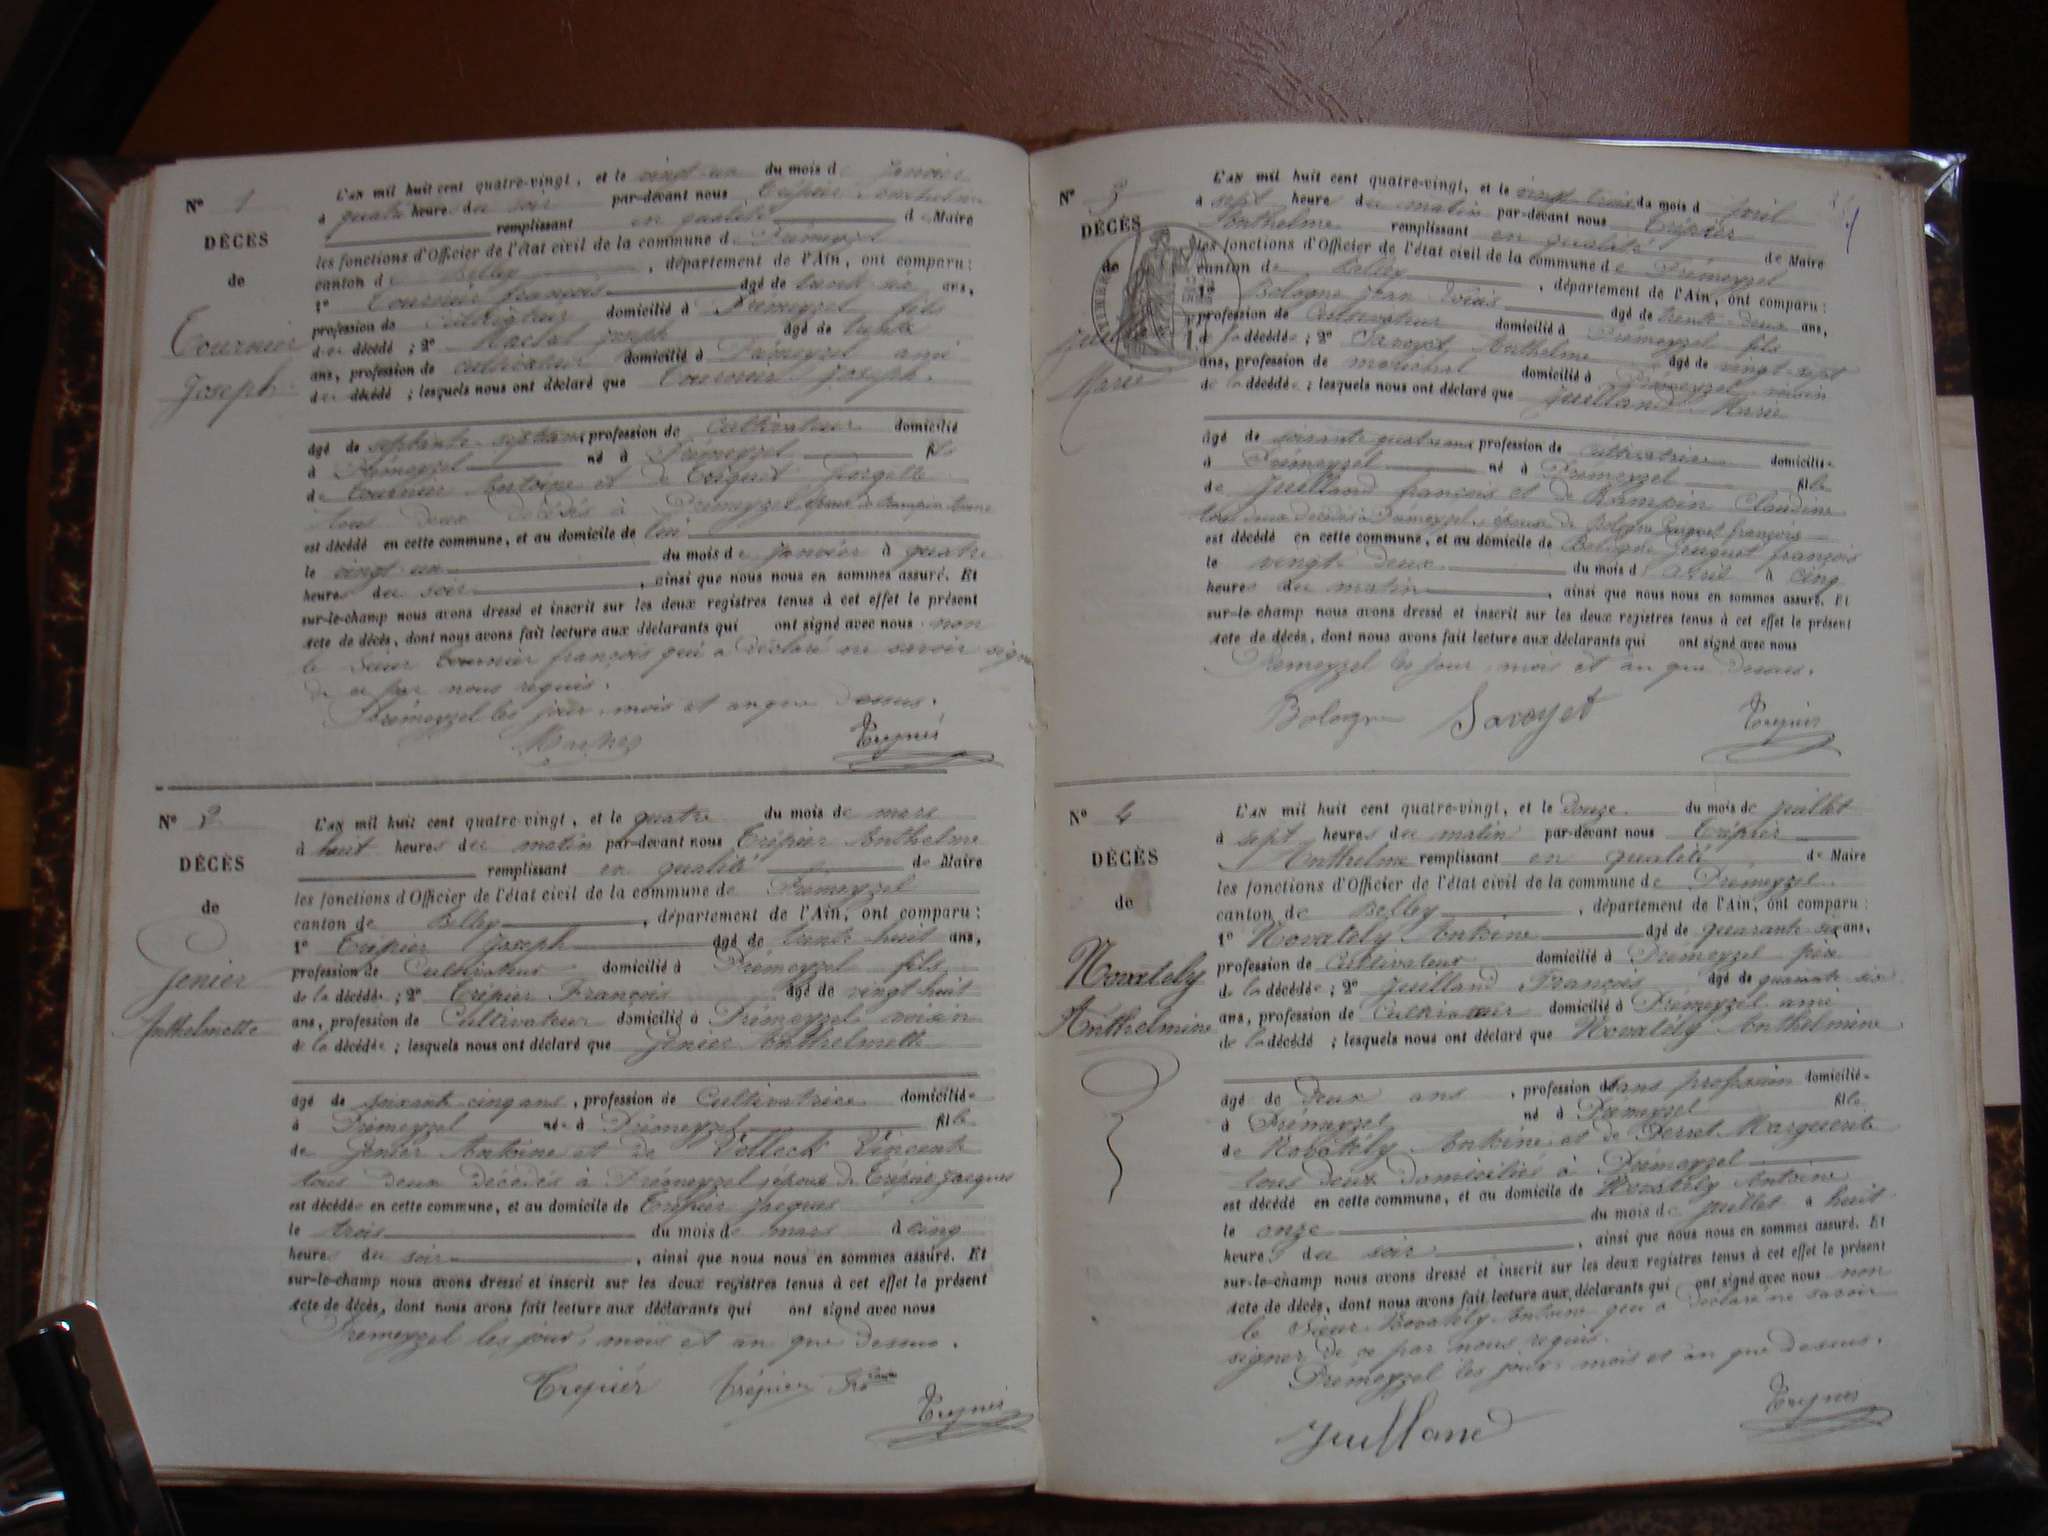 N° 1
DÉCÈS
de
Tournier
Joseph
L'AN mil huit cent quatre-vingt, et le vingt-un du mois de janvier
à quatre heures du soir par-devant nous Trépier Anthelme
remplissant en qualité de Maire
les fonctions d'Officier de l'état civil de la commune de Prémeyzel
canton de Belley, département de l'Ain, ont comparu :
1° Tournier françois âgé de trente six ans,
profession de Cultivateur domicilié à Prémeyzel fils
du décédé ; 2° Joseph âgé de trente
ans, profession de cultivateur domicilié à Prémeyzel ami
du décédé ; lesquels nous ont déclaré que Tournier Joseph
âgé de septante sept ans, profession de Cultivateur domicilié
à Prémeyzel né à Prémeyzel fils
de Tournier Antoine et de
tous deux décédés à Prémeyzel, époux de
est décédé en cette commune, et au domicile de lui
le vingt-un du mois de janvier à quatre
heures du soir, ainsi que nous nous en sommes assuré. Et
sur-le-champ nous avons dressé et inscrit sur les deux registres tenus à cet effet le présent
acte de décès, dont nous avons fait lecture aux déclarants qui ont signé avec nous non
le sieur Tournier françois qui a déclaré ne savoir signer
de ce par nous requis.
Prémeyzel les jour, mois et an que dessus.
N° 2
DÉCÈS
de
Genier
Anthelmette
L'AN mil huit cent quatre-vingt, et le quatre du mois de mars
à huit heures du matin par-devant nous Trépier Anthelme
remplissant en qualité de Maire
les fonctions d'Officier de l'état civil de la commune de Prémeyzel
canton de Belley, département de l'Ain, ont comparu :
1° Trépier Joseph âgé de trente huit ans,
profession de Cultivateur domicilié à Prémeyzel fils
de la décédée ; 2° Trépier François âgé de vingt huit
ans, profession de Cultivateur domicilié à Prémeyzel voisin
de la décédée ; lesquels nous ont déclaré que Genier Anthelmette
âgé de soixante cinq ans, profession de Cultivatrice domiciliée
à Prémeyzel née à Prémeyzel fille
de Genier Antoine et de Vincente
tous deux décédés à Prémeyzel, épouse de Trépier Jacques
est décédée en cette commune, et au domicile de Trépier Jacques
le trois du mois de mars à cinq
heures du soir, ainsi que nous nous en sommes assuré. Et
sur-le-champ nous avons dressé et inscrit sur les deux registres tenus à cet effet le présent
acte de décès, dont nous avons fait lecture aux déclarants qui ont signé avec nous
Prémeyzel les jour, mois et an que dessus.
Trepier Trépier
N° 3
DÉCÈS
de
Juilland
Marie
L'AN mil huit cent quatre-vingt, et le vingt trois du mois d'avril
à sept heures du matin par-devant nous Trépier
Anthelme remplissant en qualité de Maire
les fonctions d'Officier de l'état civil de la commune de Prémeyzel
canton de Belley, département de l'Ain, ont comparu :
1° Bologne Jean Louis âgé de trente-deux ans,
profession de Cultivateur domicilié à Prémeyzel fils
de la décédée ; 2° Savoyet Anthelme âgé de vingt-sept
ans, profession de maréchal domicilié à Prémeyzel voisin
de la décédée ; lesquels nous ont déclaré que Juilland Marie
âgé de soixante quatre ans profession de cultivatrice domiciliée
à Prémeyzel né à Prémeyzel fille
de Juilland françois et de Rampin Claudine
tous deux décédés à Prémeyzel, épouse de Bologne françois
est décédé en cette commune, et au domicile de Bologne françois
le vingt-deux du mois d'avril à cinq
heures du matin, ainsi que nous nous en sommes assuré. Et
sur-le-champ nous avons dressé et inscrit sur les deux registres tenus à cet effet le présent
acte de décès, dont nous avons fait lecture aux déclarants qui ont signé avec nous
Prémeyzel les jour, mois et an que dessus.
Bologne Savoyet
N° 4
DÉCÈS
de
Novately
Anthelmine
L'AN mil huit cent quatre-vingt, et le douze du mois de juillet
à sept heures du matin par-devant nous Trépier
Anthelme remplissant en qualité de Maire
les fonctions d'Officier de l'état civil de la commune de Prémeyzel
canton de Belley, département de l'Ain, ont comparu :
1° Novately Antoine âgé de quarante six ans,
profession de Cultivateur domicilié à Prémeyzel père
de la décédée ; 2° Juilland François âgé de quarante six
ans, profession de Cultivateur domicilié à Prémeyzel ami
de la décédé ; lesquels nous ont déclaré que Novately Anthelmine
âgé de deux ans, profession de sans profession domiciliée
à Prémeyzel né à Prémeyzel fille
de Novately Antoine et de Perret Marguerite
tous deux domiciliés à Prémeyzel
est décédé en cette commune, et au domicile de Novately Antoine
le onze du mois de juillet à huit
heures du soir, ainsi que nous nous en sommes assuré. Et
sur-le-champ nous avons dressé et inscrit sur les deux registres tenus à cet effet le présent
acte de décès, dont nous avons fait lecture aux déclarants qui ont signé avec nous non
le sieur Novately Antoine qui a déclaré ne savoir
signer de ce par nous requis.
Prémeyzel les jour, mois et an que dessus.
Juilland